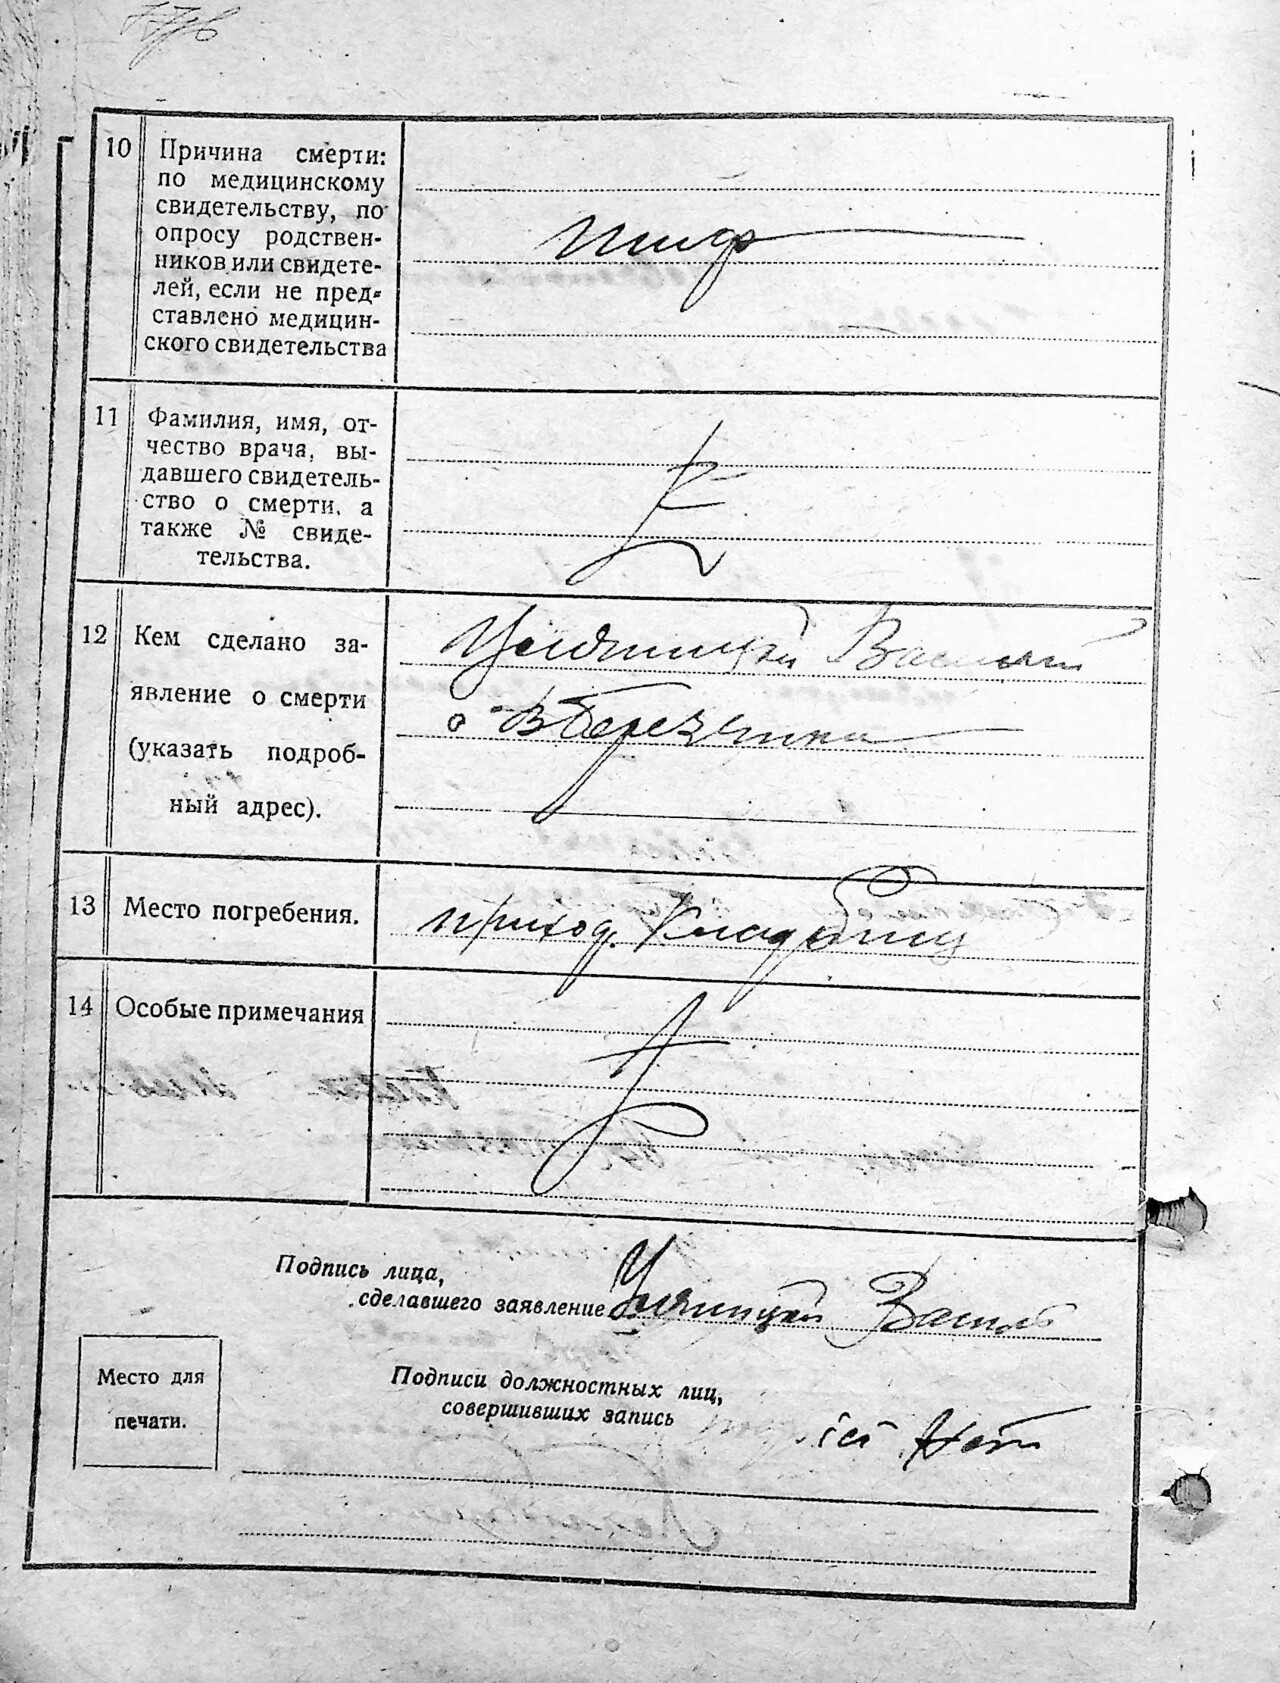 10
Причина смерти:
по медицинскому
свидетельству, по
опросу родствен-
ников или свидете-
лей, если не пред-
ставлено медицин-
ского свидетельства
тиф
11
Фамилия, имя, от-
чество врача, вы-
давшего свидетель-
ство о смерти, а
также № свиде-
тельства.
12
Кем сделано за-
явление о смерти
(указать подроб-
ный адрес).
Василий
13
Место погребения.
приход. Кладбищ
14
Особые примечания
Подпись лица,
сделавшего заявление
Василь
Место для
печати.
Подписи должностных лиц,
совершивших запись